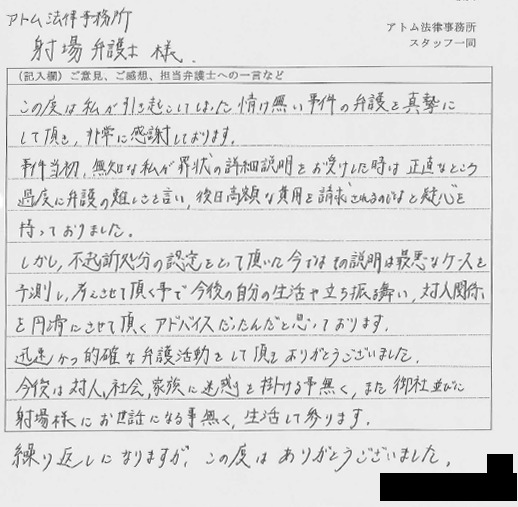 アトム法律事務所
射場弁護士 様.
アトム法律事務所
スタッフ一同
(記入欄) ご意見、ご感想、担当弁護士への一言など
この度は私が引き起こしてしまった情け無い事件の弁護を真摯に
して頂き、非常に感謝しております。
事件当初、無知な私が罪状の詳細説明をお受けした時は正直なところ
過度に弁護の難しさを言い、後日高額な費用を請求されるのではと疑心を
持っておりました。
しかし、不起訴処分の認定をとして頂いた今ではその説明は最悪なケースを
予測し、考えさせて頂く事で今後の自分の生活や立ち振る舞い、対人関係
を円滑にさせて頂くアドバイスだったんだと思っております。
迅速かつ的確な弁護活動をして頂きありがとうございました。
今後は対人、社会、家族に迷惑を掛ける事無く、また御社並びに
射場様にお世話になる事無く、生活して参ります。
繰り返しになりますが、この度はありがとうございました。